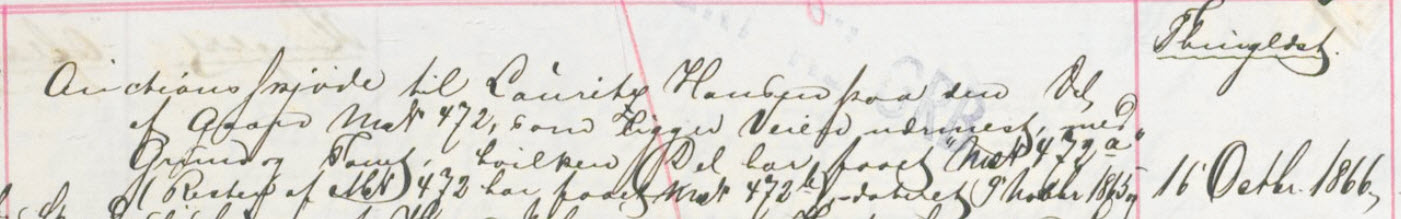 Thinglæst.
Auctionsskjøde til Lauritz Hansen paa den Del
af Gaard Mat 472, som ligger Veien nærmest, med
Grund og Tomt, hvilken Del har faaet "Mat 472 a"
(Resten af Mat 472 har faaet Mat 472 b) dateret 1865
16 Octbr. 1866,